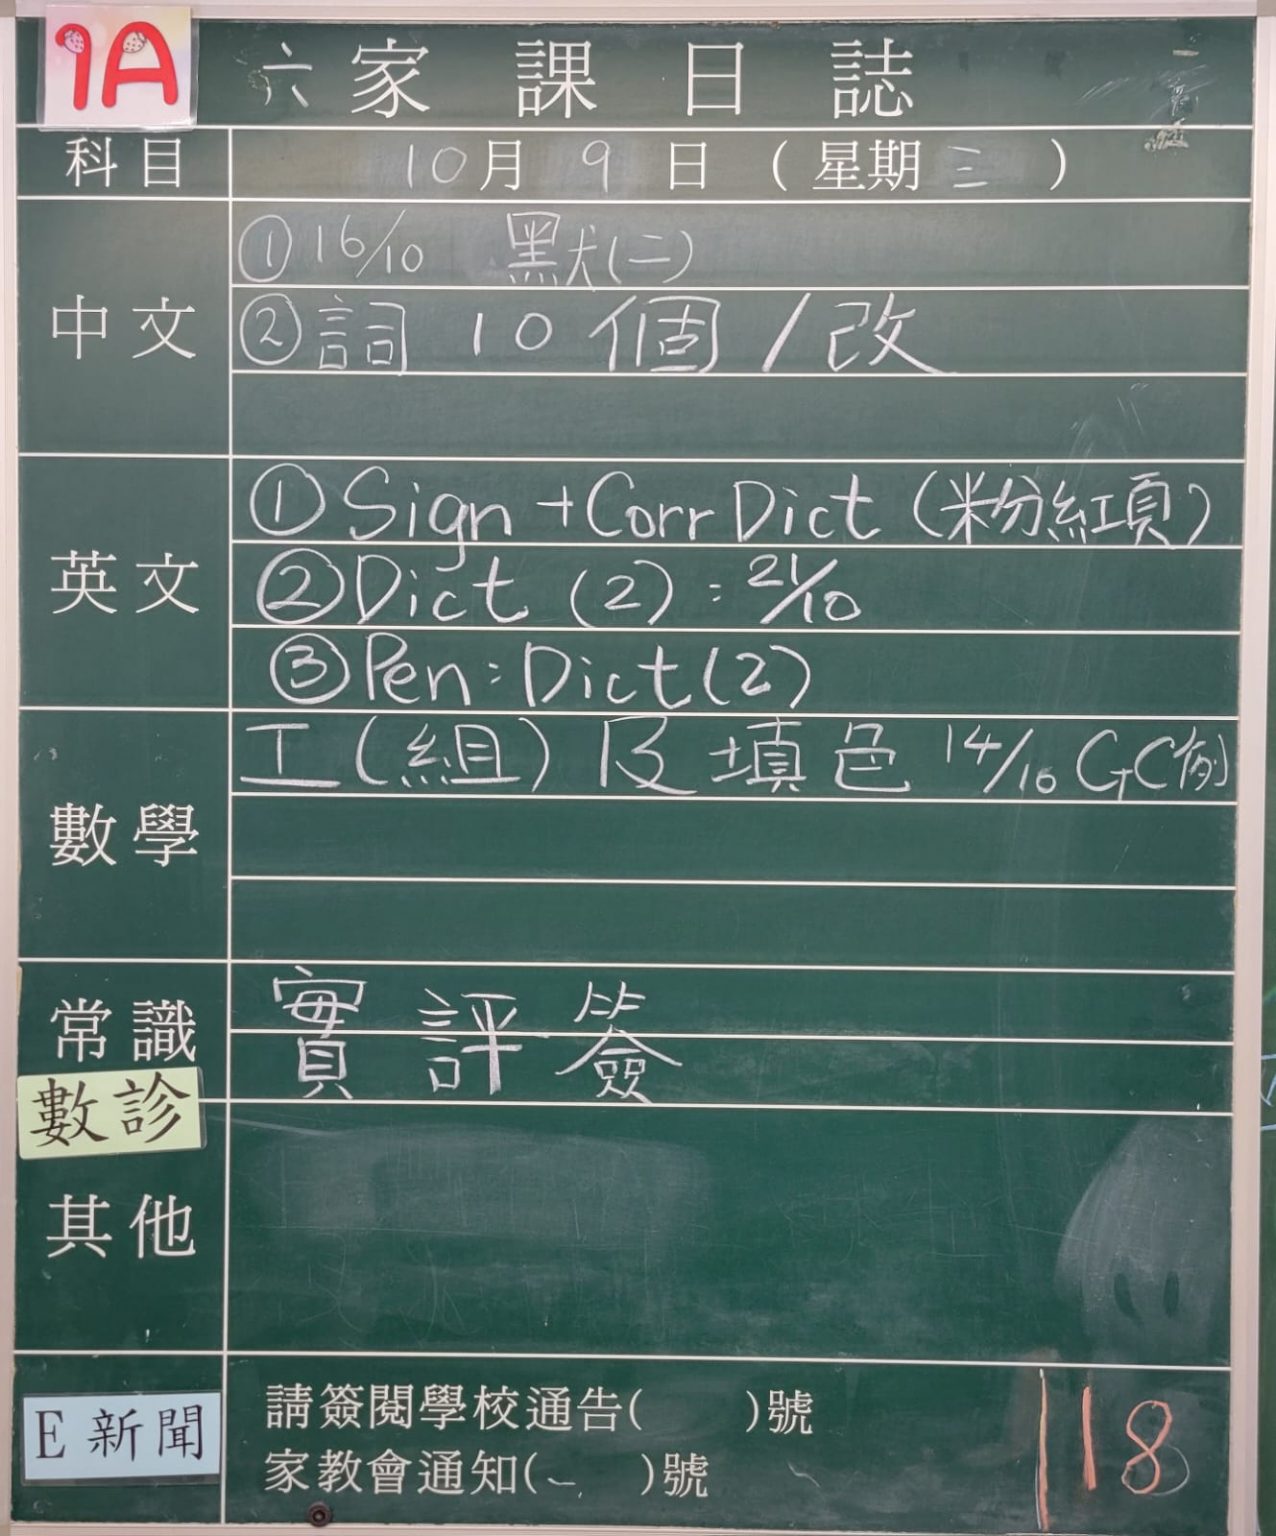 1A
六 家 課 日 誌
科目 10月 9 日 ( 星期 三 )
中文 ① 16/10 默(二)
② 詞 10 個 / 改
英文 ① Sign + Corr Dict (粉紅頁)
② Dict (2) : 21/10
③ Pen : Dict (2)
數學 工(組) 及 填 色 14/10 GC例
常識 實 評 簽
數診
其他
E 新聞 請簽閱學校通告( )號
家教會通知( )號
118